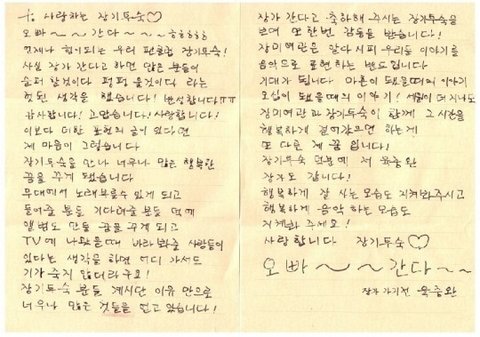 to 사랑하는 장기두숙♡
오빠~~간다~~ㅎㅎㅎㅎㅎ
언제나 힘이되는 우리 팬클럽 장기두숙!
사실 장가 간다고 하면 많은 분들이
슬퍼 할것이다 펑펑 울것이다 라는
헛된 생각을 했습니다! 반성합니다ㅠㅠ
감사합니다! 고맙습니다! 사랑합니다!
이보다 더한 표현의 글이 있다면
제 마음이 그렇습니다
장기두숙을 만나 너무나 많은 행복한
꿈을 꾸게 됐습니다
무대에서 노래부를수 있게 되고
들어줄 분들 기다려줄 분들 덕에
앨범도 만들 꿈을 꾸게 되고
TV에 나왔을때 바라봐줄 사람들이
있다는 생각을 하면 어디 가서도
기가 죽지 않더라구요!
장기두숙 분들 계시단 이유 만으로
너무나 많은 것들을 얻고 있습니다!
장가 간다고 축하해 주시는 장기두숙을
보며 또한번 감동을 받습니다!
장미여관은 알다시피 우리들 이야기를
음악으로 표현하는 밴드입니다
기대가 됩니다 마흔이 됐을때의 이야기
오십이 됐을때의 이야기! 세월이 더 지나도
장미여관과 장기두숙이 함께 그 시간을
행복하게 걸어갔으면 하는게
또 다른 제 꿈 입니다!
장기두숙 덕분에 저 육중완
장가도 갑니다!
행복하게 잘 사는 모습도 지켜봐주시고
행복하게 음악 하는 모습도
지켜봐 주세요!
사랑 합니다 장기두숙♡
오빠~~간다~~
장가 가기전 육중완